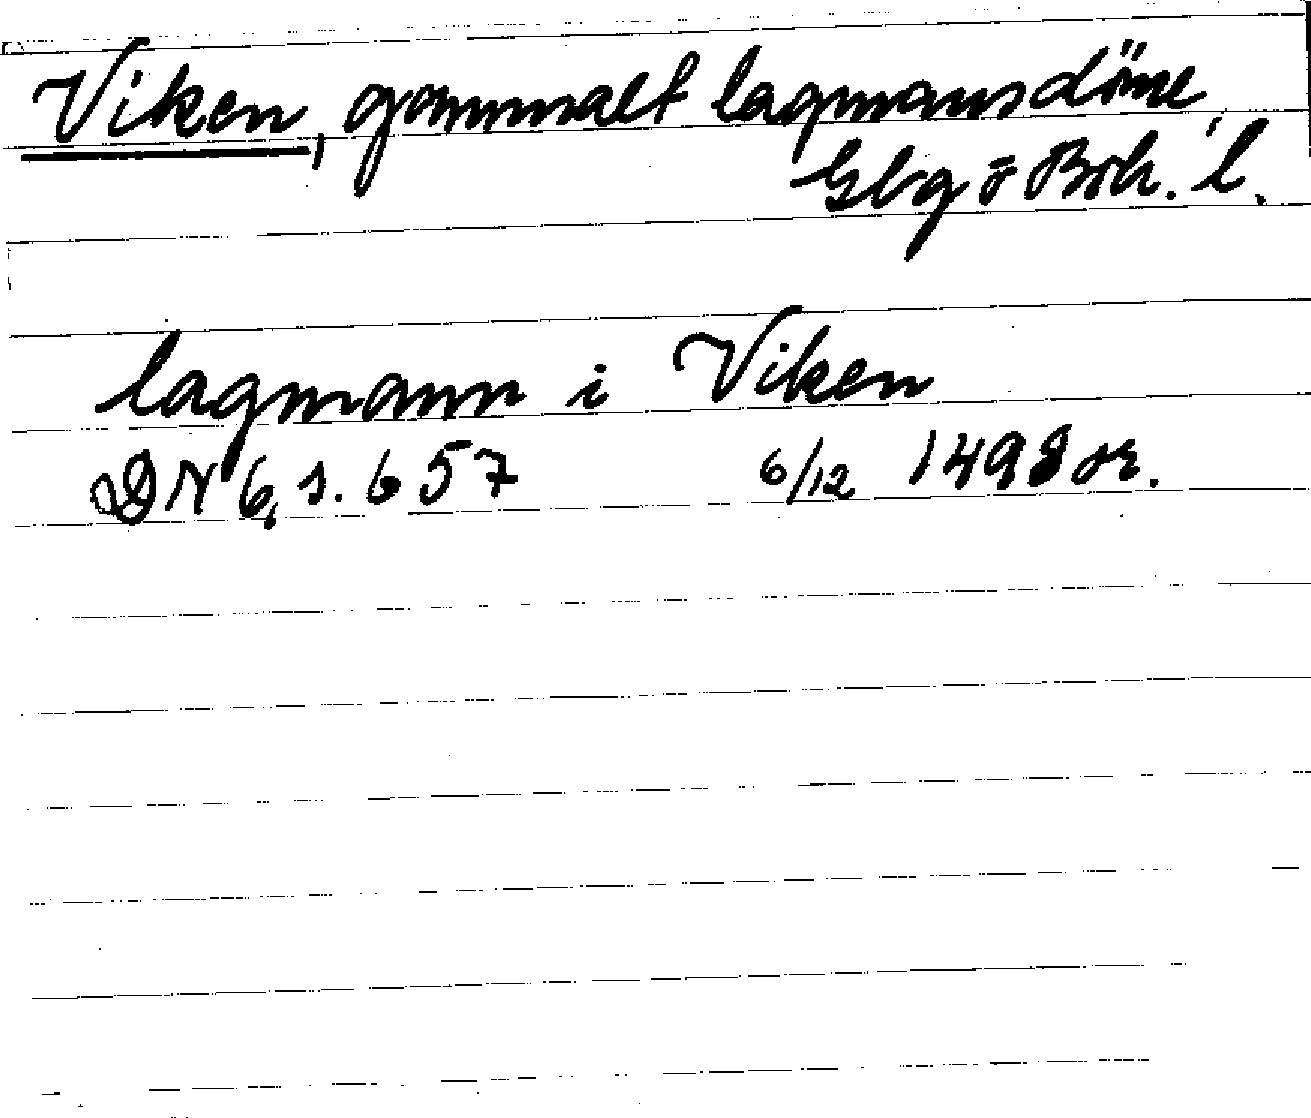 Viken, gammalt lagmansdöme,
Gbg o Boh. l.
lagmann i Viken
DN 6, s. 657 6/12 1498 or.